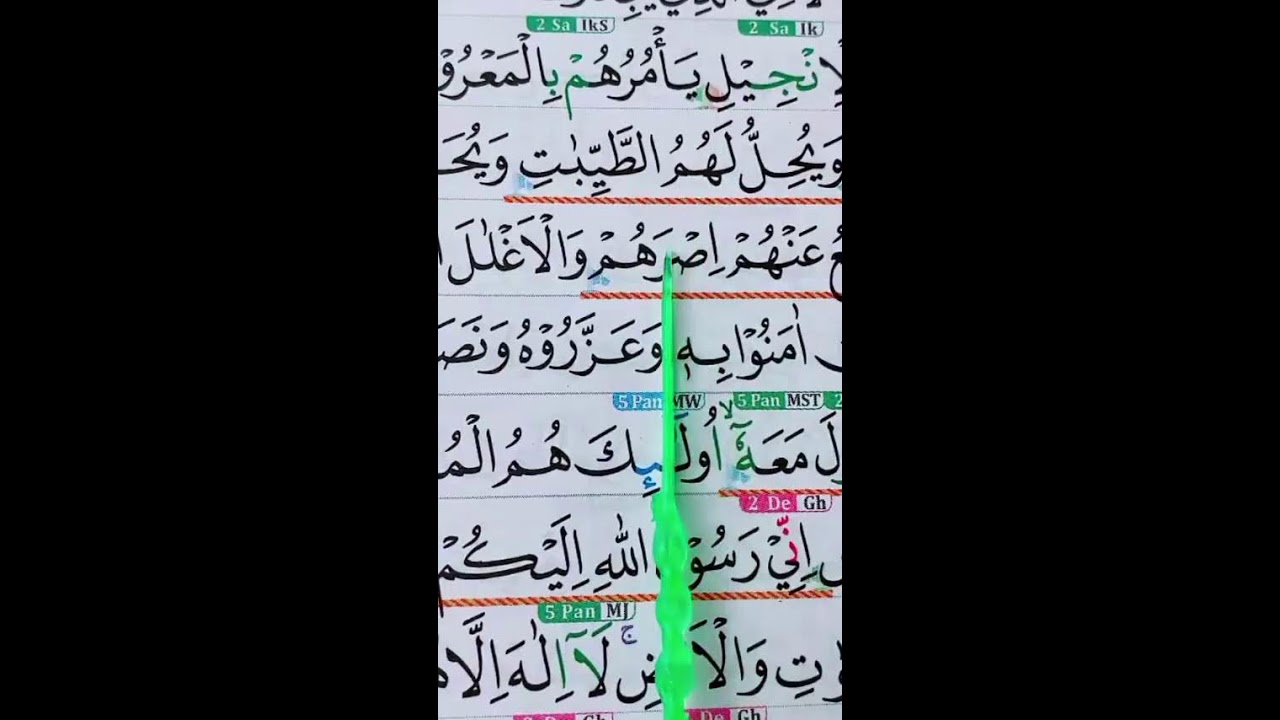 2 Sa IkS 2 Sa Ik
نْجِيْلِ يَأْمُرُهُمْ بِالْمَعْرُوْ
وَيُحِلُّ لَهُمُ الطَّيِّبٰتِ وَيُحَ
عُ عَنْهُمْ اِصْرَهُمْ وَالْاَغْلٰلَ ا
اٰمَنُوْا بِهٖ وَعَزَّرُوْهُ وَنَصَ
5 Pan MW 5 Pan MST 2
لَ مَعَهٗٓ ۙ اُولٰٓىِٕكَ هُمُ الْمُ
2 De Gh
اِنِّيْ رَسُوْلُ اللّٰهِ اِلَيْكُمْ
5 Pan MJ
وٰتِ وَالْاَرْضِ ۚ لَآ اِلٰهَ اِلَّا
De Gh